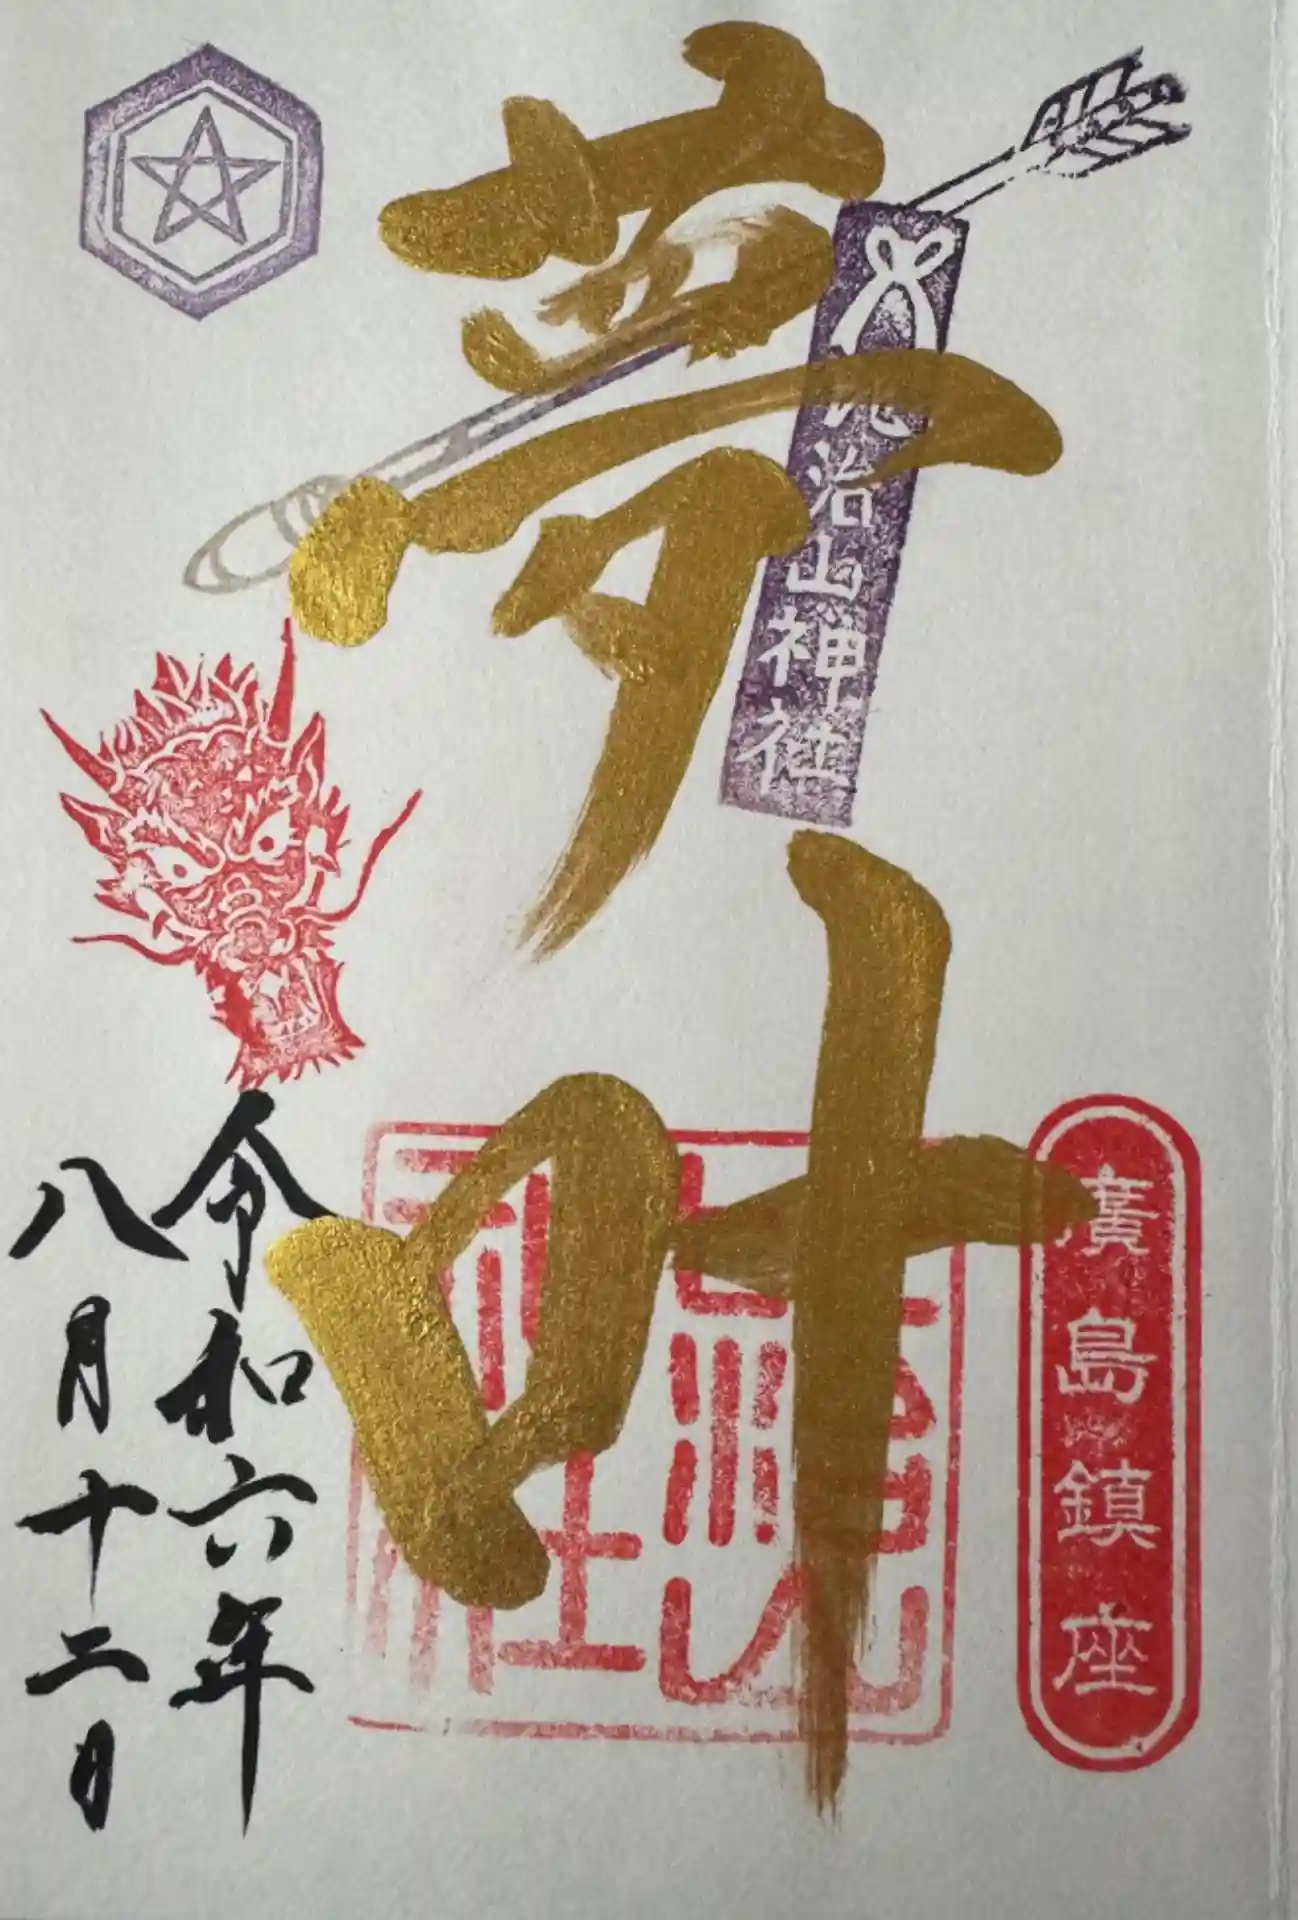 廣島鎮座
夢叶
比治山神社
令和六年
八月十二日